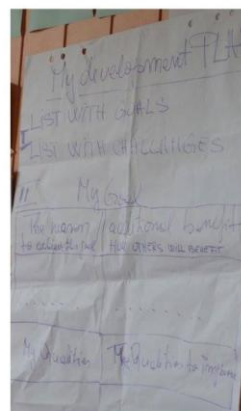 My development PLA
LIST WITH GOALS
I
LIST WITH CHALLENGES
II My Goal
additional benefit
to achieve the goal HOW OTHERS WILL BENEFIT
My Qualities My Qualities to improve